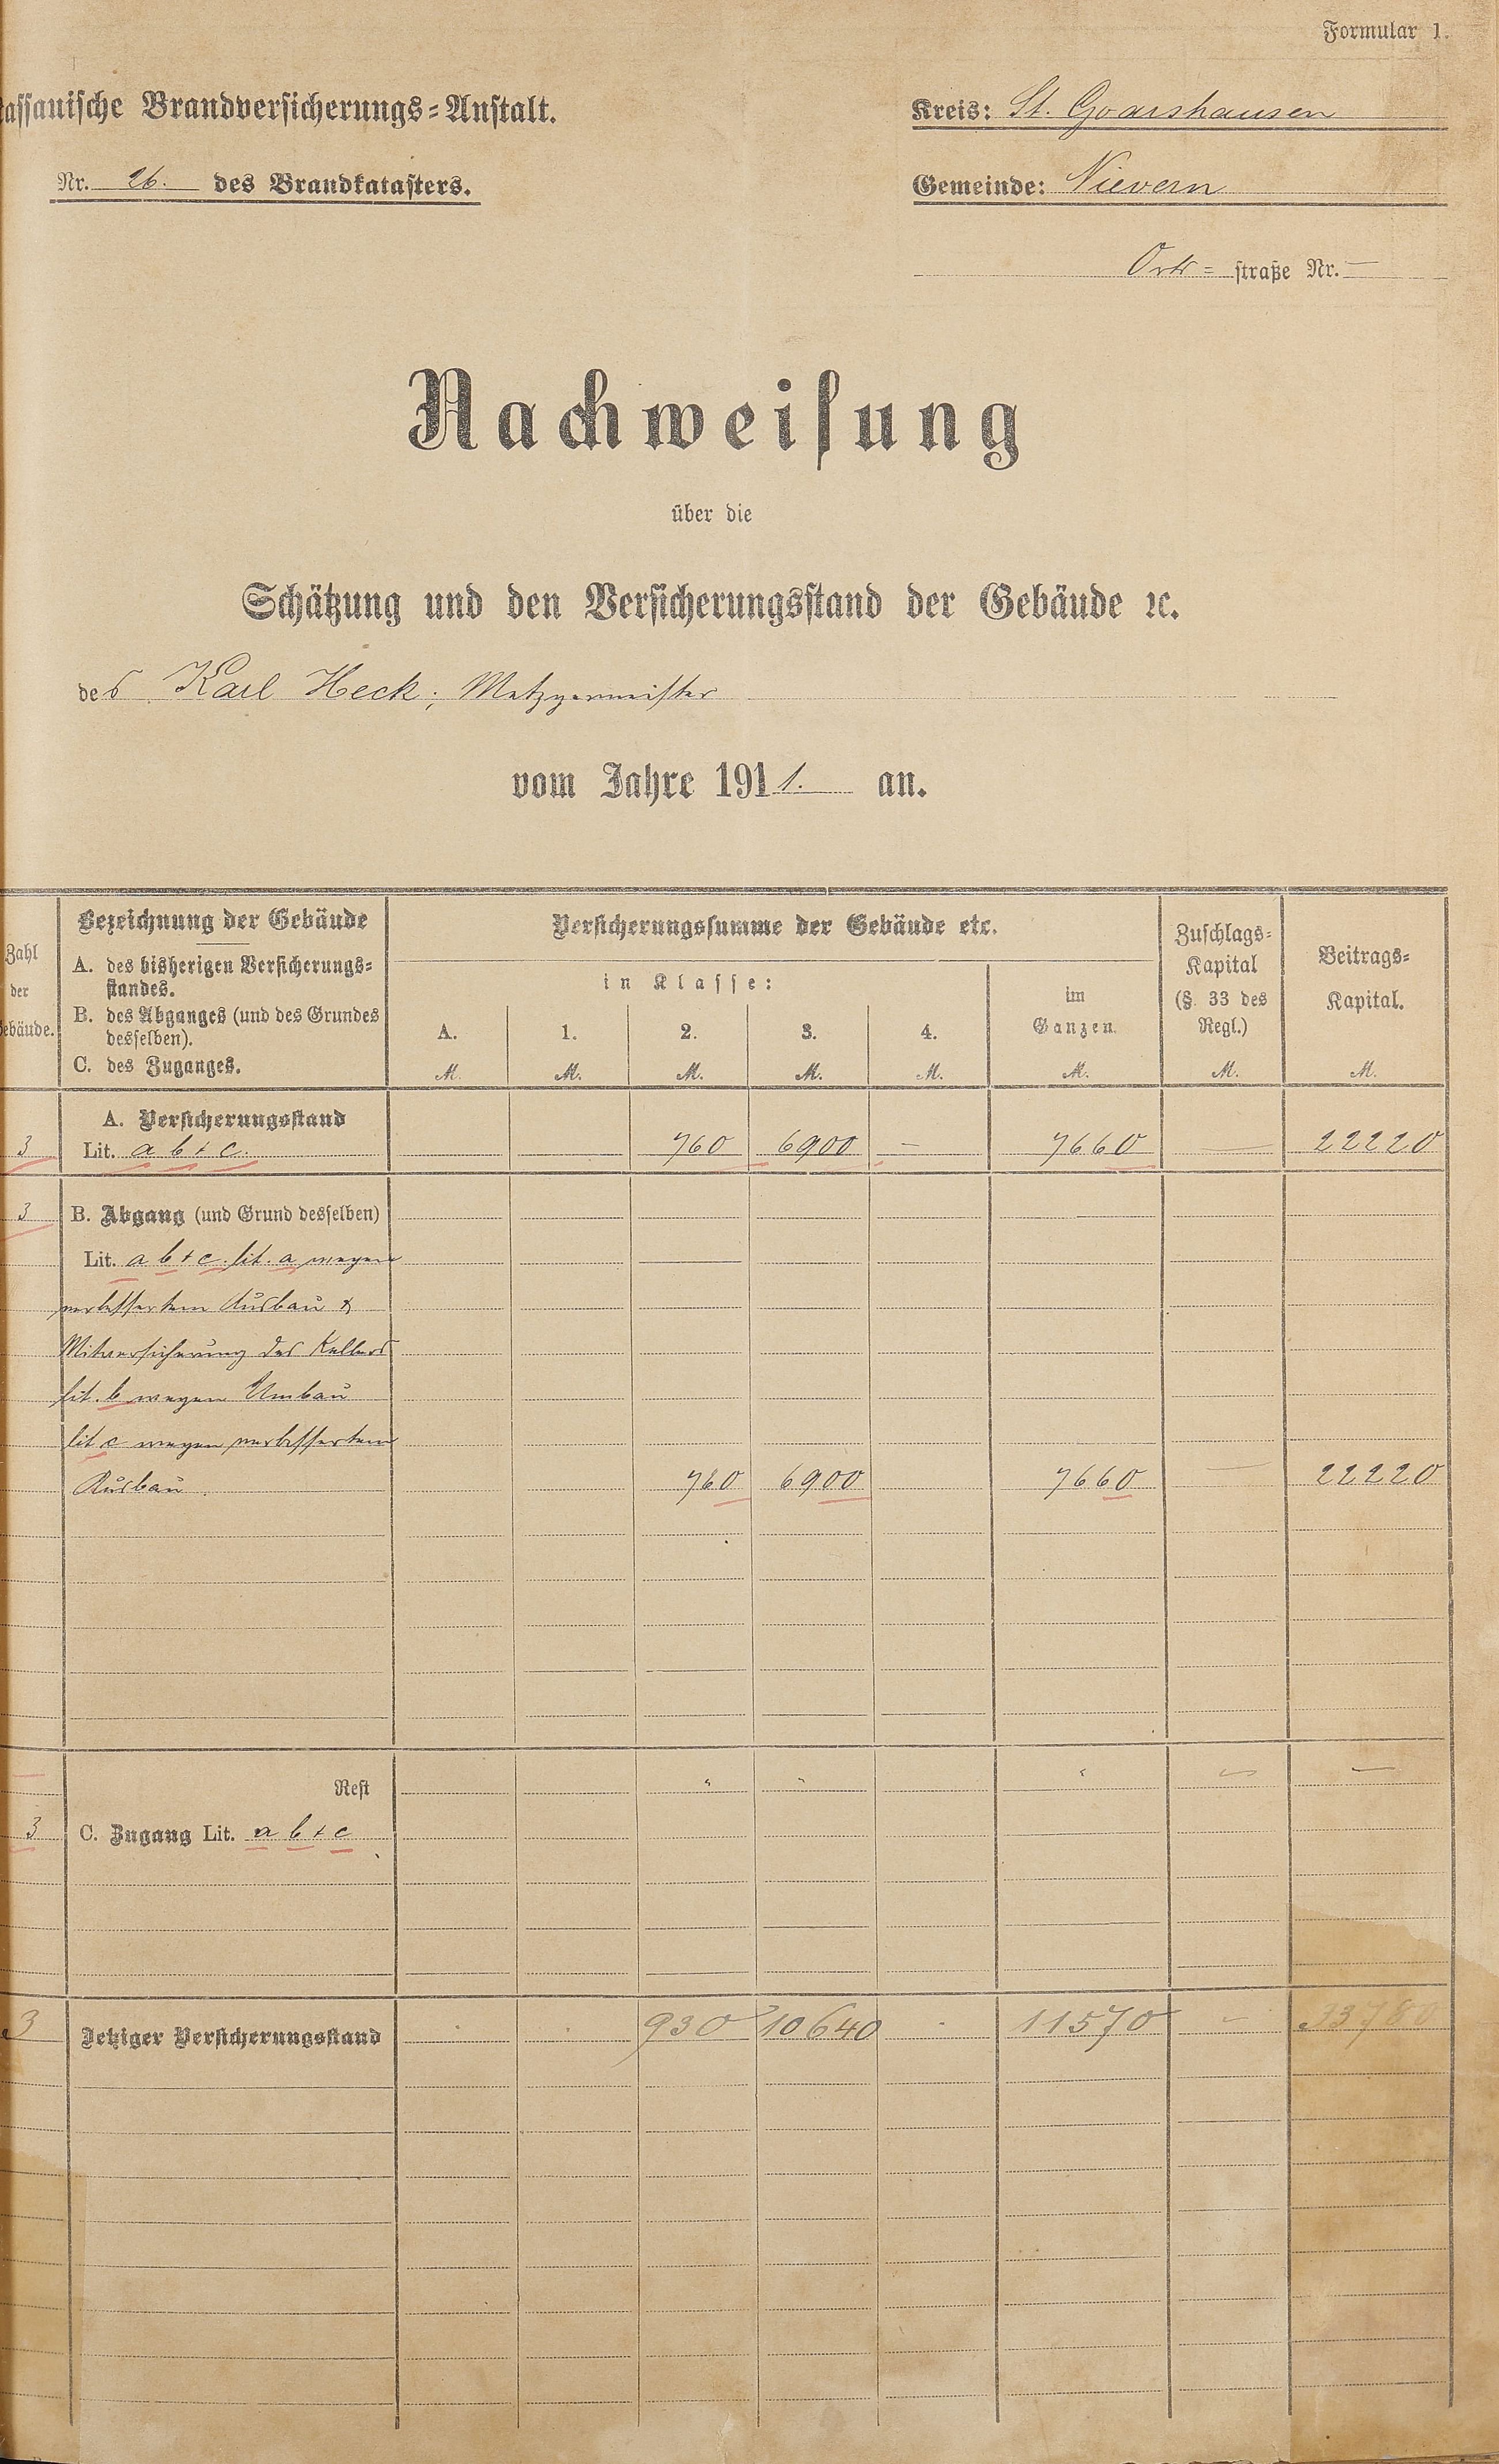 Formular 1.
assauische Brandversicherungs=Anstalt.
Kreis: St. Goarshausen
Nr. 26. des Brandkatasters.
Gemeinde: Nievern
Orts= straße Nr. —
Nachweisung
über die
Schätzung und den Versicherungsstand der Gebäude ꝛc.
des Karl Heck, Metzgermeister
vom Jahre 1911. an.
Zahl
der
ebäude.
Bezeichnung der Gebäude
A. des bisherigen Versicherungs=
standes.
B. des Abganges (und des Grundes
desselben).
C. des Zuganges.
Versicherungssumme der Gebäude etc.
in Klasse:
A. 1. 2. 3. 4.
M. M. M. M. M.
im
Ganzen.
M.
Zuschlags=
Kapital
(§. 33 des
Regl.)
M.
Beitrags=
Kapital.
M.
A. Versicherungsstand
3 Lit. a b + c. 760 6900 — 7660 — 22220
3 B. Abgang (und Grund desselben)
Lit. a b + c. lit. a wegen
verbessertem Ausbau &
Mitversicherung des Kellers
lit. b wegen Umbau
lit c wegen verbessertem
Ausbau. 760 6900 7660 — 22220
Rest " " " — —
3 C. Zugang Lit. a b + c
3 Jetziger Versicherungsstand 930 10640 11570 — 33780